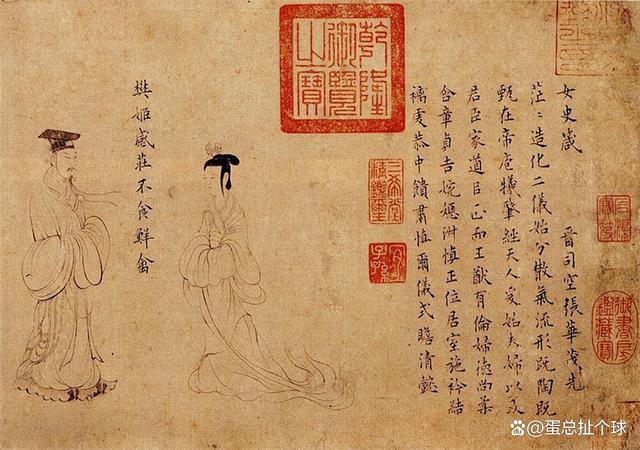 女史箴 晉司空張華茂先
茫〻造化二儀始分散氣流形既陶既
甄在帝庖犧肇經天人爰始夫婦以及
君臣家道㠯正而王猷有倫婦德尚柔
含章貞吉婉嫕淑慎正位居室施衿結
褵虔恭中饋肅慎爾儀式瞻清懿
樊姬感莊不食鮮禽
乾隆御覽之寶
三希堂精鑑璽
宜子孫
石渠寶笈
御書房鑑藏寶
@蛋总扯个球